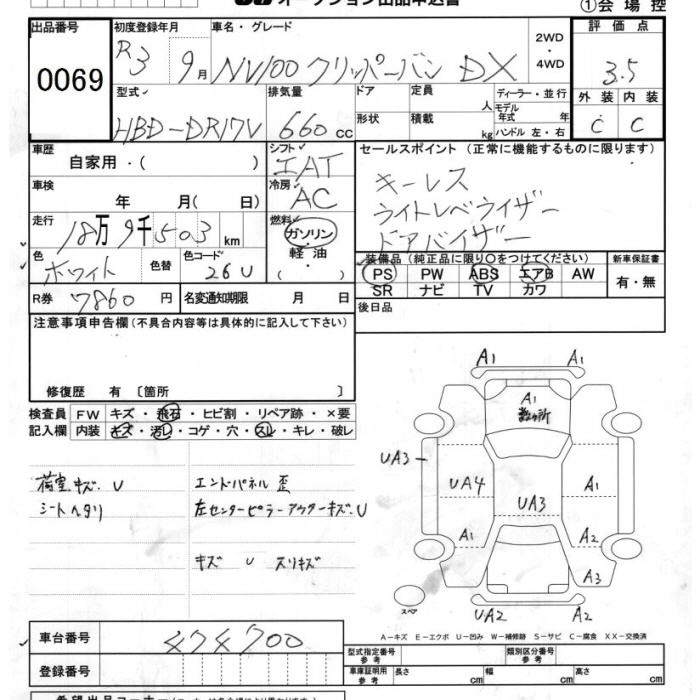 オークション出品申込書
①会場控
出品番号 初度登録年月 車名・グレード 2WD・4WD 評価点
0069 R3 9月 NV100クリッパーバン DX 3.5
型式 排気量 ドア 定員 人 ディーラー・並行 外装 内装
モデル年式 年
HBD-DR17V 660cc 形状 積載 kg ハンドル 左・右 C C
車歴 シフト セールスポイント(正常に機能するものに限ります)
自家用・( ) IAT
キーレス
車検 年 月( 日) 冷房 AC
ライトレベライザー
走行 18万9千503km 燃料 ガソリン・軽油・( )
ドアバイザー
色 ホワイト 色替 色コード 26U
装備品(純正品に限り○をつけてください) 新車保証書
PS PW ABS エアB AW 有・無
SR ナビ TV カワ
R券 7860円 名変通知期限 月 日
後日品
注意事項申告欄(不具合内容等は具体的に記入して下さい)
修復歴 有〔箇所 〕
検査員記入欄 FW キズ・飛石・ヒビ割・リペア跡・×要
内装 キズ・汚レ・コゲ・穴・スレ・キレ・破レ
荷室キズ.U エンドパネル歪
シートヘタリ 左センターピラーアウターキズ.U
キズ U スリキズ
A1 A1
A1
数ヶ所
UA3
UA4 A1
UA3
A1 A2
A3
スペア UA2 A2
A−キズ E−エクボ U−凹み W−補修跡 S−サビ C−腐食 XX−交換済
車台番号 474700
型式指定番号 参考 類別区分番号 参考
登録番号
車庫証明用 参考 長さ cm 幅 cm 高さ cm